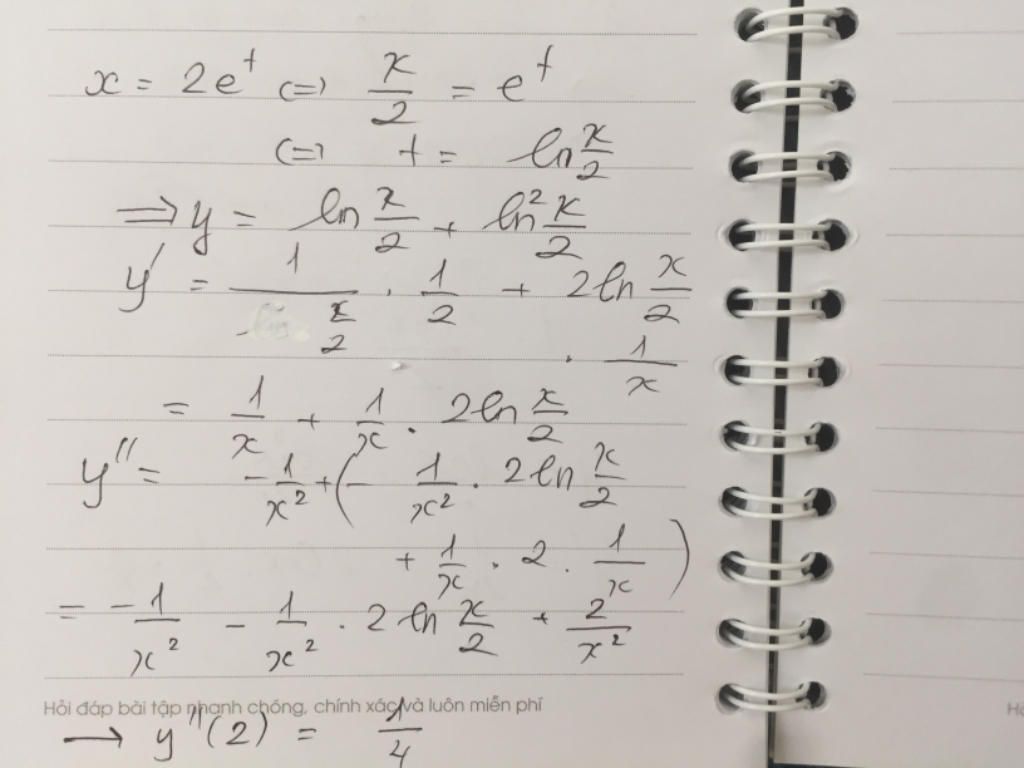 x = 2e^t <=> x/2 = e^t
<=> t = ln x/2
=> y = ln x/2 + ln² x/2
y' = 1/(x/2) . 1/2 + 2ln x/2
. 1/x
= 1/x + 1/x . 2ln x/2
y'' = -1/x² + (- 1/x² . 2ln x/2
+ 1/x . 2 . 1/x)
= -1/x² - 1/x² . 2ln x/2 + 2/x²
Hỏi đáp bài tập nhanh chóng, chính xác và luôn miễn phí
→ y''(2) = 1/4